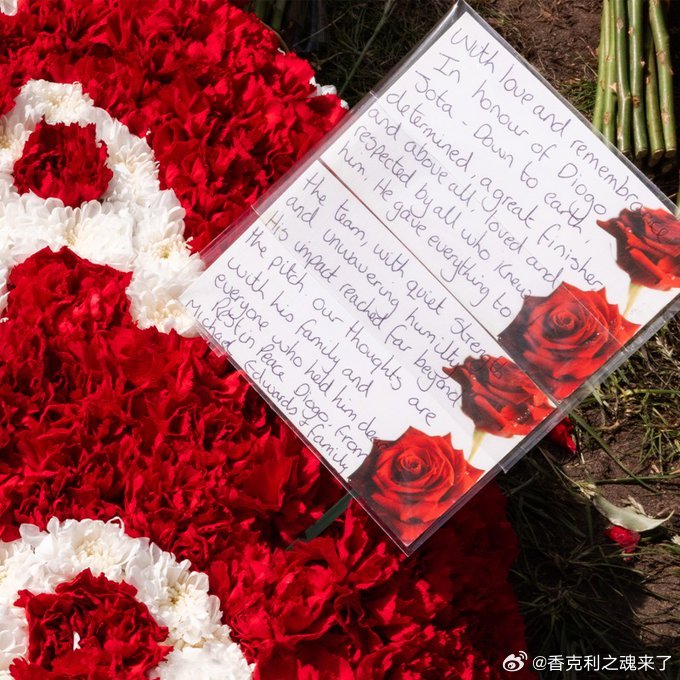 With love and remembrance
In honour of Diogo
Jota - Down to earth,
determined, a great finisher
and above all, loved and
respected by all who knew
him. He gave everything to
the team, with quiet strength
and unwavering humility.
His impact reached far beyond
the pitch our thoughts are
with his family and
everyone who held him dear
Rest in Peace Diogo, from
Michael Edwards & family
@香克利之魂来了